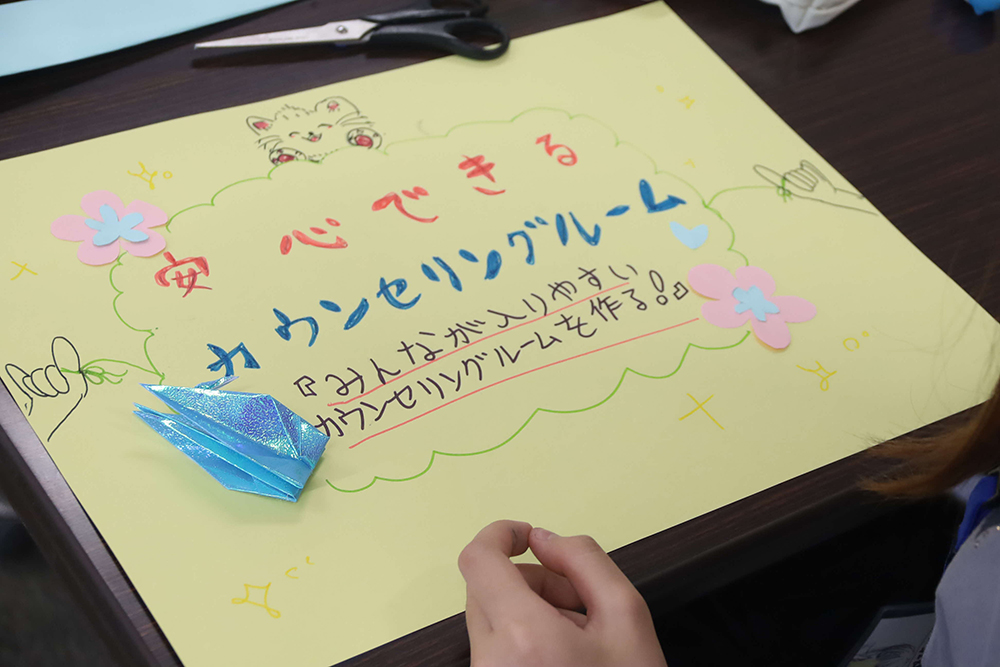 安心できる
カウンセリングルーム
『みんなが入りやすい
カウンセリングルームを作る!』